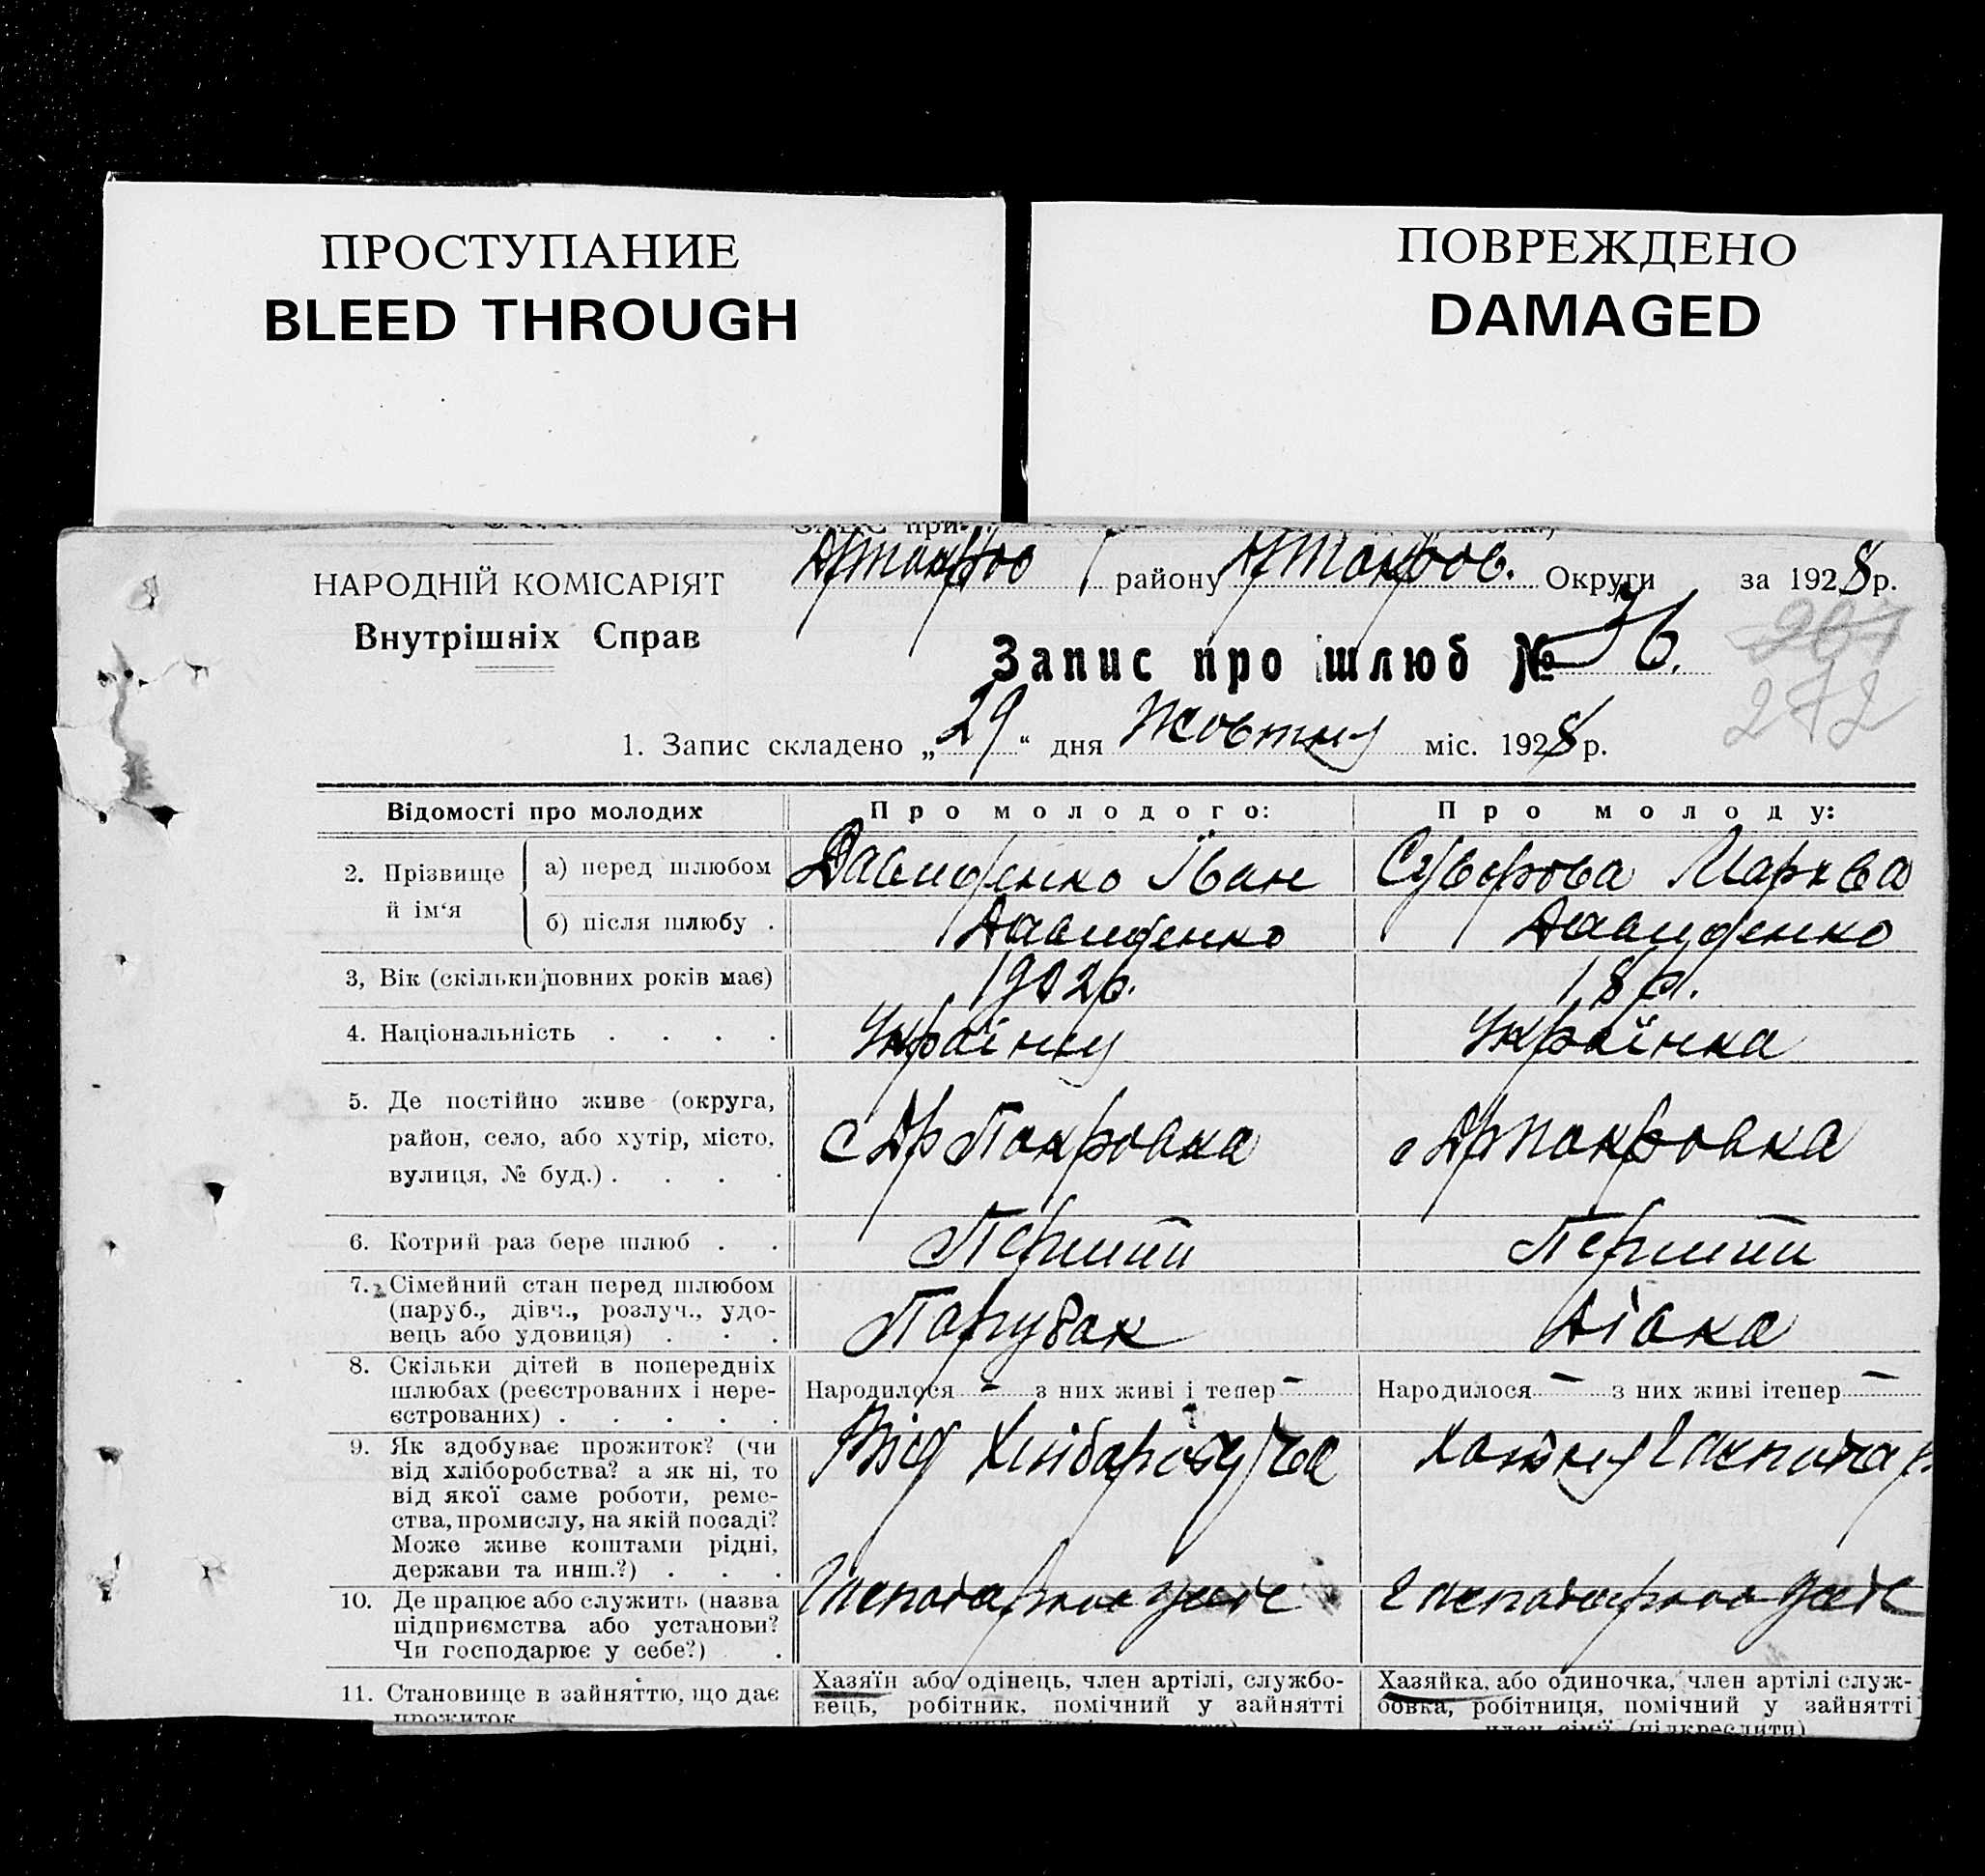 ПРОСТУПАНИЕ
BLEED THROUGH
ПОВРЕЖДЕНО
DAMAGED
НАРОДНІЙ КОМІСАРІЯТ
Внутрішніх Справ
району Округи за 1928 р.
Запис про шлюб №
267
272
1. Запис складено „29“ дня Жовтня міс. 1928 р.
Відомості про молодих Про молодого: Про молоду:
2. Прізвище й ім'я
а) перед шлюбом Давиденко Іван Суворова
б) після шлюбу . Давиденко Давиденко
3, Вік (скільки повних років має) 1902р. 18 р.
4. Національність . . . . Українець Українка
5. Де постійно живе (округа,
район, село, або хутір, місто,
вулиця, № буд.) . . . .
с Др Покровка с Др Покровка
6. Котрий раз бере шлюб . . Перший Перший
7. Сімейний стан перед шлюбом
(паруб., дівч., розлуч., удо-
вець або удовиця) . . .
Парубак Дівка
8. Скільки дітей в попередніх
шлюбах (реєстрованих і нере-
єстрованих) . . . . .
Народилося – з них живі і тепер – Народилося – з них живі ітепер –
9. Як здобуває прожиток? (чи
від хліборобства? а як ні, то
від якої саме роботи, реме-
ства, промислу, на якій посаді?
Може живе коштами рідні,
держави та инш.?) . . .
Від
10. Де працює або служить (назва
підприємства або установи?
Чи господарює у себе?) .
11. Становище в зайняттю, що дає
прожиток
Хазяїн або одінець, член артілі, службо-
вець, робітник, помічний у зайнятті
Хазяйка, або одиночка, член артілі служ-
бовка, робітниця, помічний у зайнятті
член сім'ї (підкреслити)